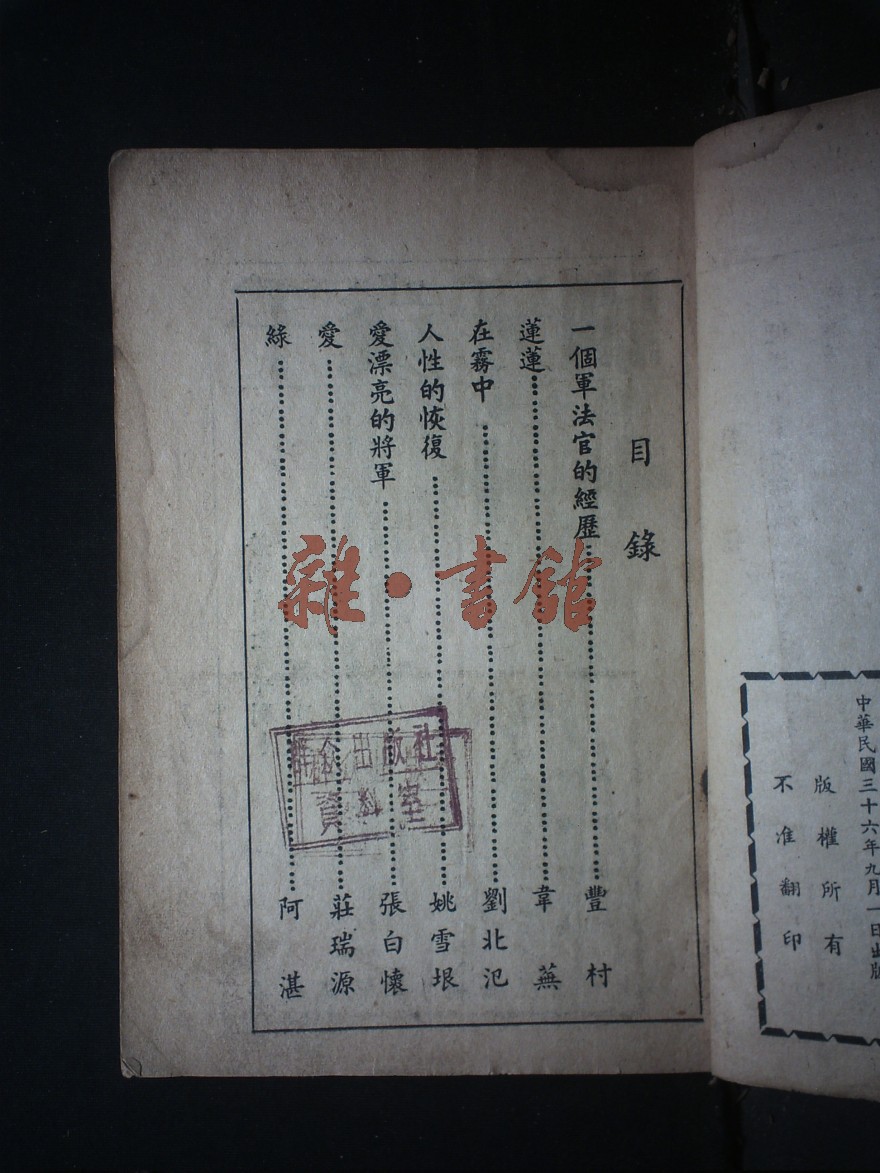 中華民國三十六年九月一日出版
版權所有
不准翻印
目錄
一個軍法官的經歷……豐村
蓮蓮……韋蕪
在霧中……劉北汜
人性的恢復……姚雪垠
愛漂亮的將軍……張白懷
愛……莊瑞源
綠……阿湛
雜·書館
群众出版社
資料室